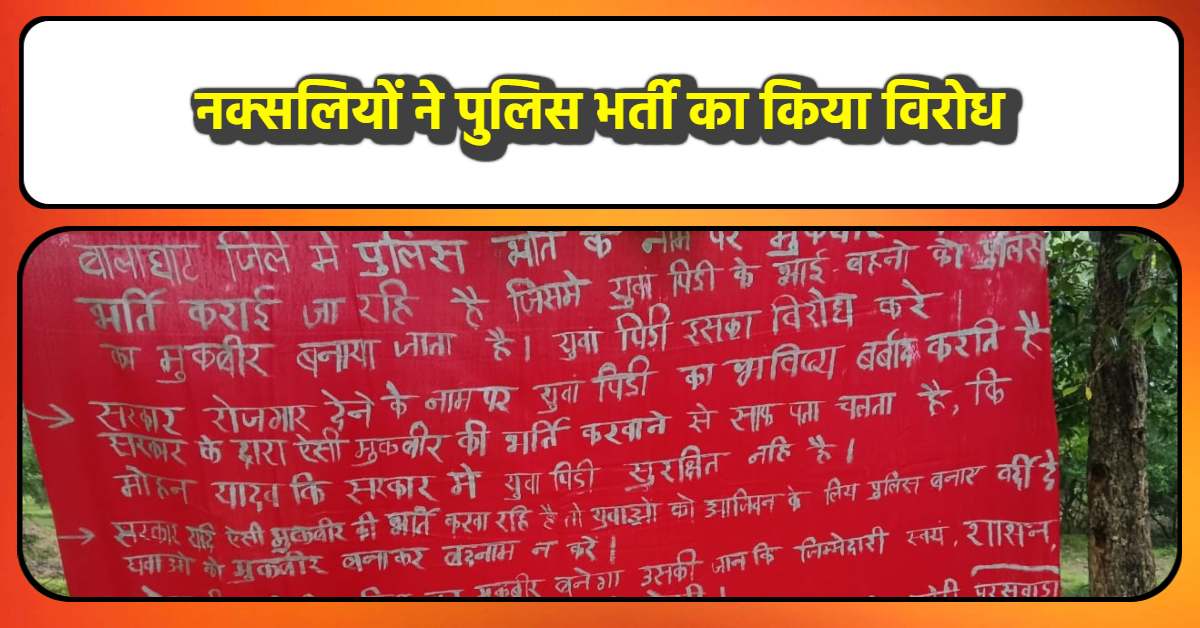 नक्सलियों ने पुलिस भर्ती का किया विरोध
बालाघाट जिले मे पुलिस भर्ति के नाम पर मुकबीर
भर्ति कराई जा रहि है जिसमे युवां पिडी के भाई-बहनो को पुलिस
का मुकबीर बनाया जाता है। युवां पिडी इसका विरोध करे
→ सरकार रोजगार देने के नाम पर युवां पिडी का भाविष्य बर्बाद करति है
सरकार के द्वारा ऐसी मुकबीर की भर्ति करवाने से साफ पता चलता है, कि
मोहन यादव कि सरकार मे युवा पिडी सुरक्षित नहि है।
→ सरकार यदि ऐसी मुकबीर की भर्ति करवा रहि है तो युवाओ को आजिवन के लिय पुलिस बनाए वर्दी दे
युवाओ को मुकबीर बनाकर बदनाम न करे।
मुकबीर बनेगा उसकी जान कि जिम्मेदारी स्वयं, शाशन,
परसवाडा